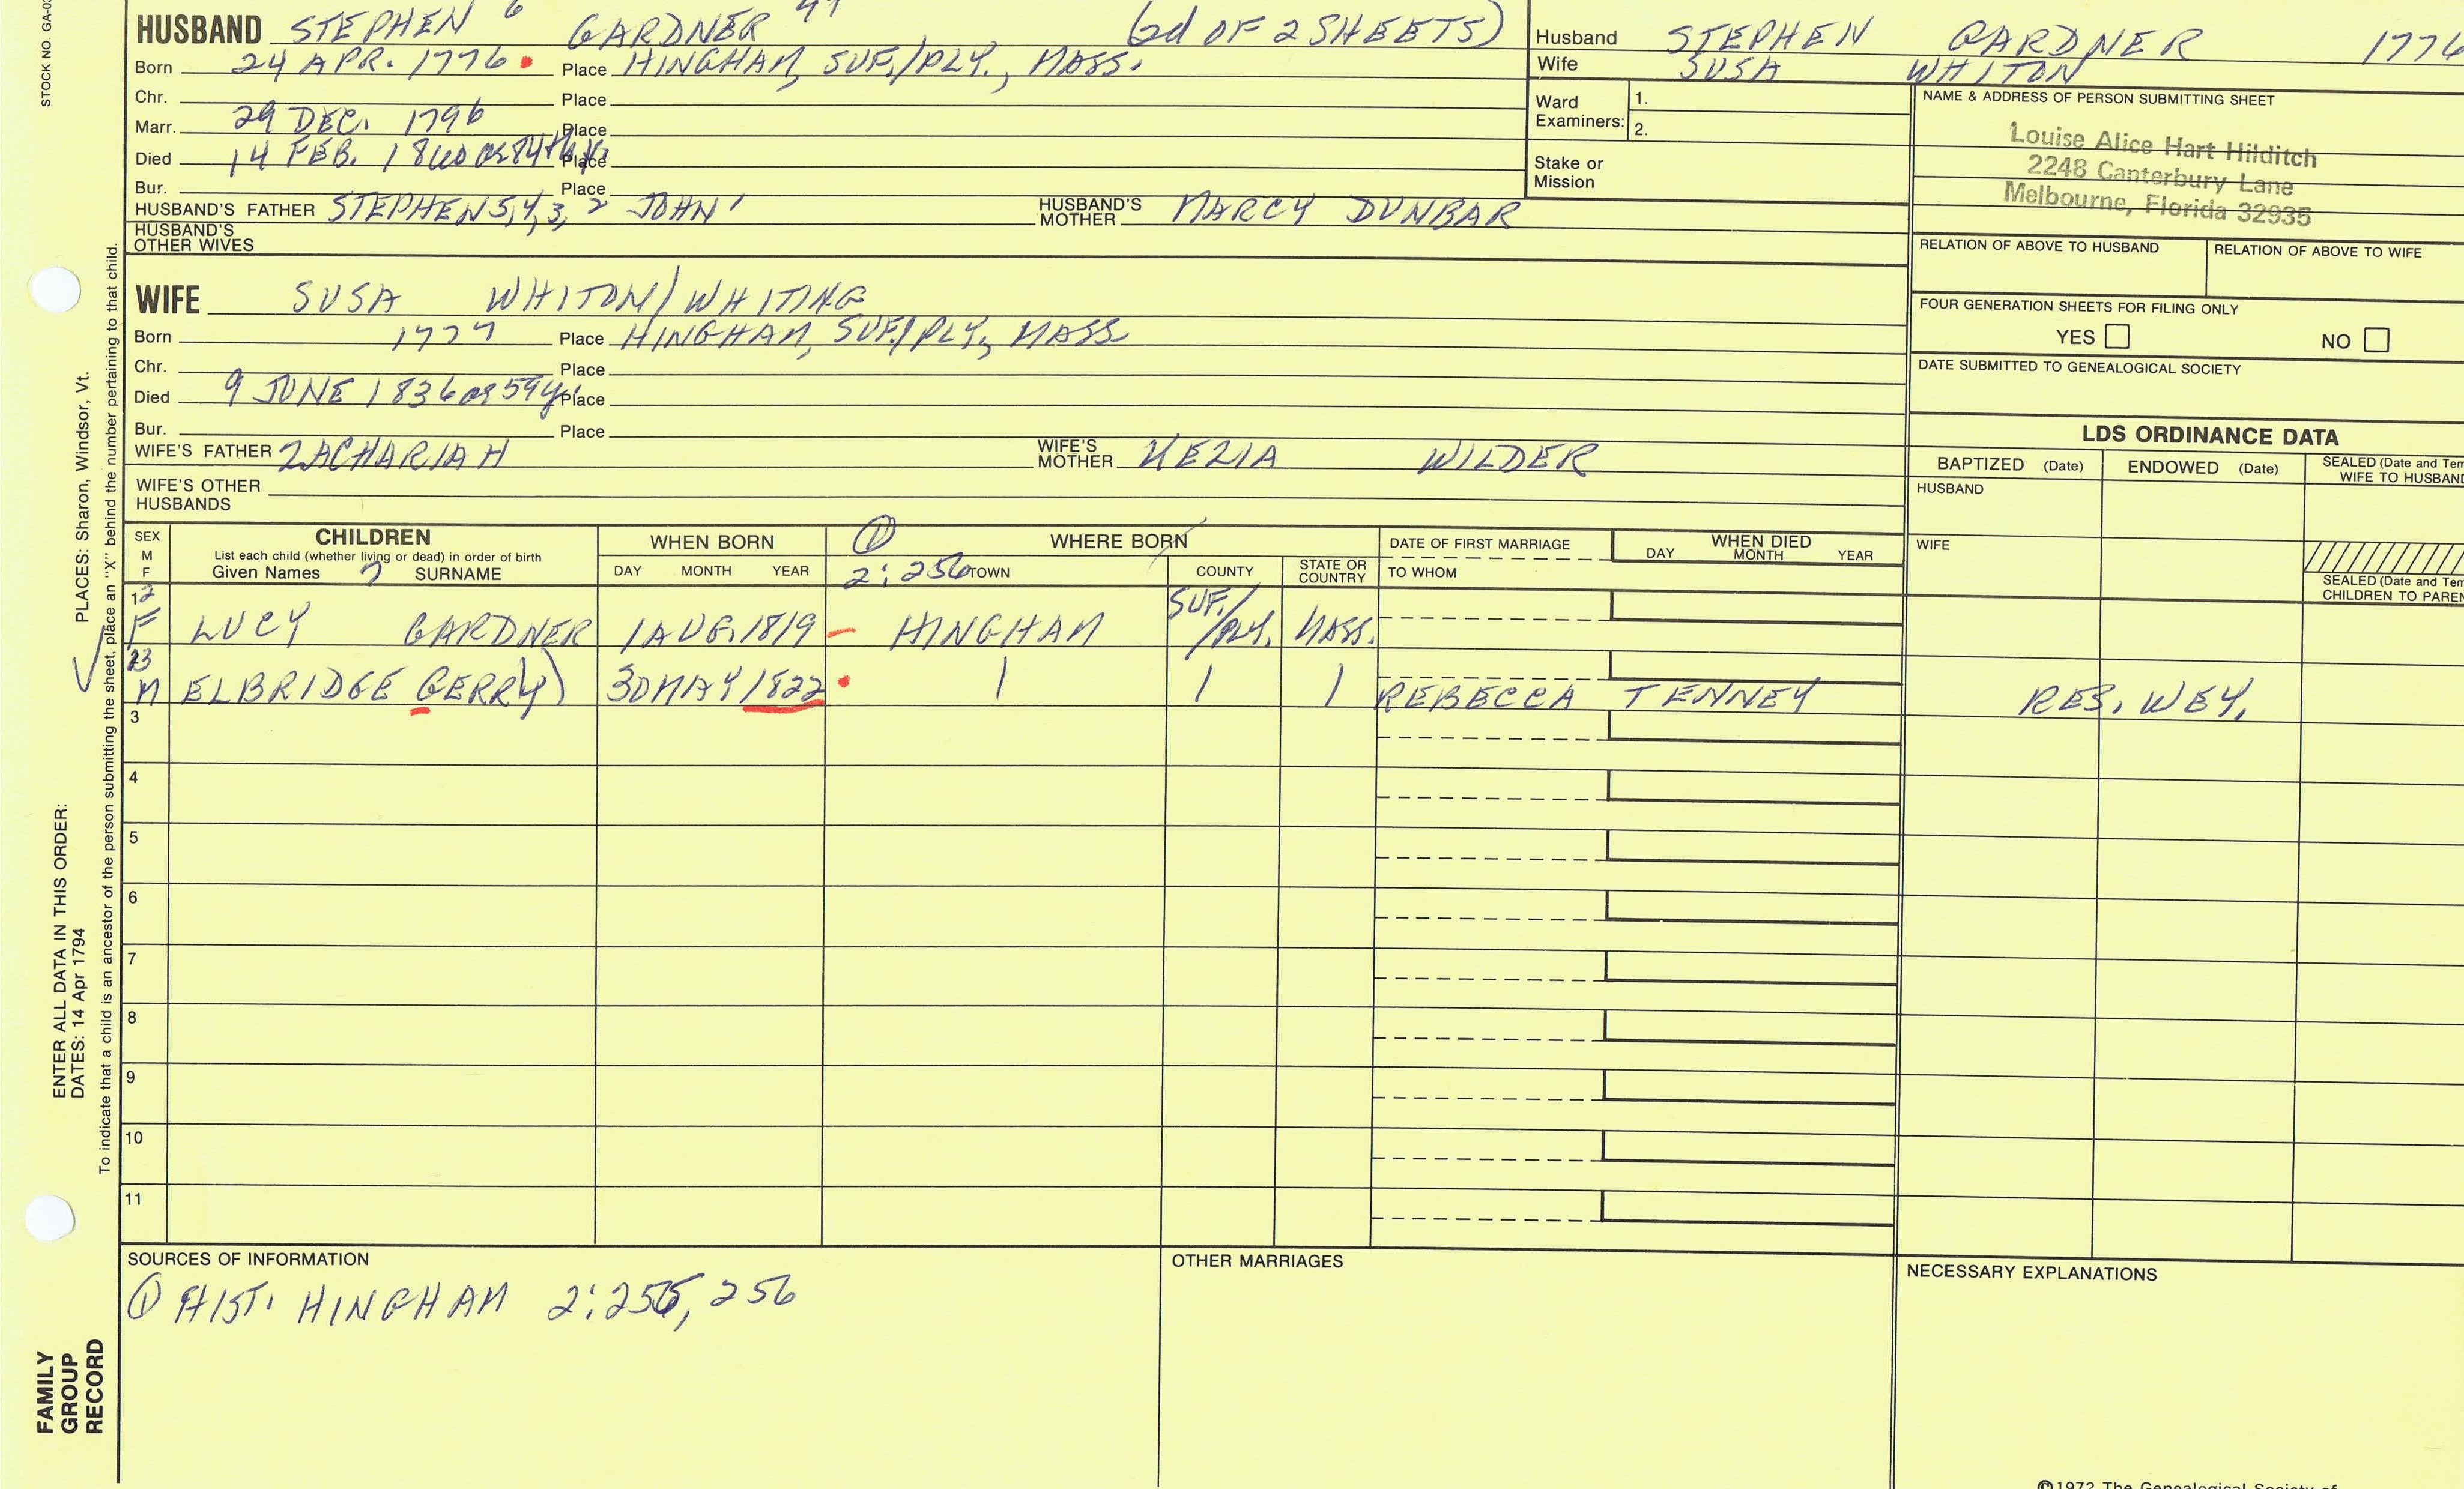 HUSBAND STEPHEN 6 GARDNER (2d OF 2 SHEETS)
Born 24 APR. 1776 Place HINGHAM, SUF./PLY., MASS.
Chr. Place
Marr. 29 DEC. 1796 Place
Died 14 FEB. 1860 Place
Bur. Place
HUSBAND'S FATHER STEPHEN 5,4,3, 2 JOHN 1 HUSBAND'S MOTHER MARCY DUNBAR
HUSBAND'S OTHER WIVES
WIFE SUSA WHITON/WHITING
Born 1777 Place HINGHAM, SUF./PLY., MASS
Chr. Place
Died 9 JUNE 1836 ae 59y. Place
Bur. Place
WIFE'S FATHER ZACHARIAH WIFE'S MOTHER KEZIA WILDER
WIFE'S OTHER HUSBANDS
Husband STEPHEN GARDNER 1776
Wife SUSA WHITON
Ward Examiners: 1.
2.
Stake or Mission
NAME & ADDRESS OF PERSON SUBMITTING SHEET
Louise Alice Hart Hilditch
2248 Canterbury Lane
Melbourne, Florida 32935
RELATION OF ABOVE TO HUSBAND RELATION OF ABOVE TO WIFE
FOUR GENERATION SHEETS FOR FILING ONLY
YES NO
DATE SUBMITTED TO GENEALOGICAL SOCIETY
LDS ORDINANCE DATA
BAPTIZED (Date) ENDOWED (Date) SEALED (Date and Tem
WIFE TO HUSBAND
HUSBAND
WIFE
SEALED (Date and Tem
CHILDREN TO PAREN
SEX M F CHILDREN WHEN BORN ① WHERE BORN DATE OF FIRST MARRIAGE WHEN DIED
List each child (whether living or dead) in order of birth
Given Names 7 SURNAME DAY MONTH YEAR 2:256 TOWN COUNTY STATE OR COUNTRY TO WHOM DAY MONTH YEAR
12 F LUCY GARDNER 1 AUG. 1819 HINGHAM SUF./PLY. MASS.
23 M ELBRIDGE GERRY) 30 MAY 1822 REBECCA TENNEY RES. WEY.
3
4
5
6
7
8
9
10
11
SOURCES OF INFORMATION
① HIST. HINGHAM 2:255, 256
OTHER MARRIAGES
NECESSARY EXPLANATIONS
©1972 The Genealogical Society of
STOCK NO. GA-0
PLACES: Sharon, Windsor, Vt.
ENTER ALL DATA IN THIS ORDER:
DATES: 14 Apr 1794
To indicate that a child is an ancestor of the person submitting the sheet, place an "X" behind the number pertaining to that child.
FAMILY
GROUP
RECORD